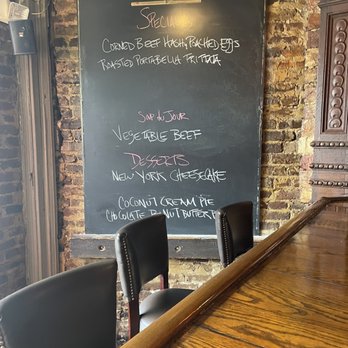 Specials
Corned Beef Hash, Poached Eggs
Roasted Portabella Frittata
Soup du Jour
Vegetable Beef
Desserts
New York Cheesecake
Coconut Cream Pie
Chocolate Peanut Butter